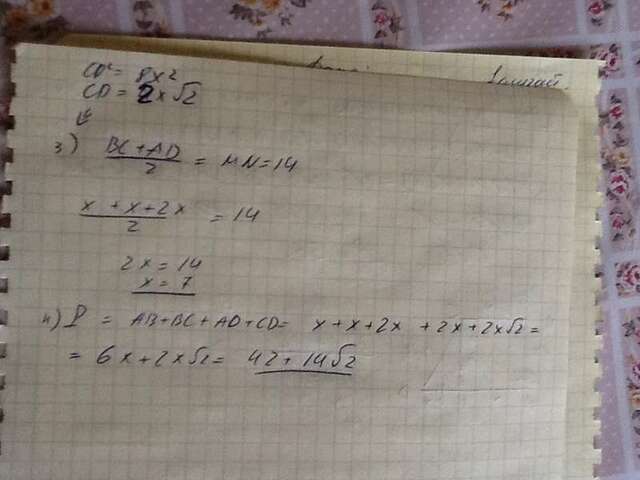 CD² = 8x²
CD = 2x√2
3) (BC + AD)/2 = MN = 14
(x + x + 2x)/2 = 14
2x = 14
x = 7
4) P = AB + BC + AD + CD = x + x + 2x + 2x + 2x√2 =
= 6x + 2x√2 = 42 + 14√2